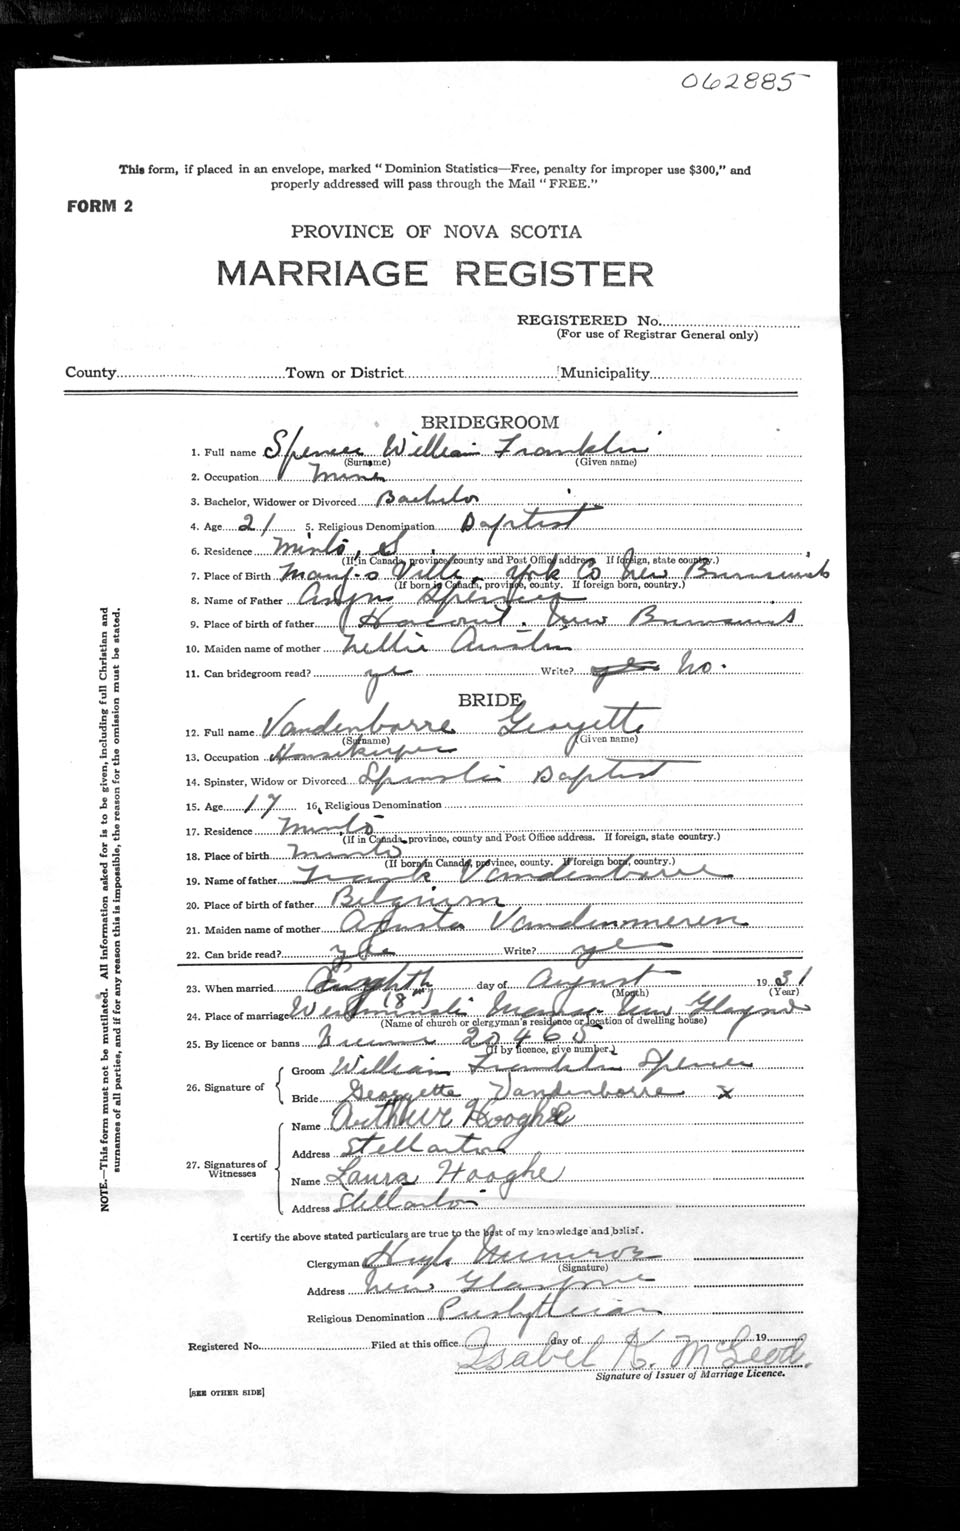 062885
This form, if placed in an envelope, marked "Dominion Statistics—Free, penalty for improper use $300," and
properly addressed will pass through the Mail "FREE."
FORM 2
PROVINCE OF NOVA SCOTIA
MARRIAGE REGISTER
REGISTERED No.
(For use of Registrar General only)
County Town or District Municipality
BRIDEGROOM
1. Full name Spencer William Franklin
(Surname) (Given name)
2. Occupation Miner
3. Bachelor, Widower or Divorced Bachelor
4. Age 21 5. Religious Denomination Baptist
6. Residence Minto,
(If in Canada, province, county and Post Office address. If foreign, state country.)
7. Place of Birth Marys Ville, York Co New Brunswick
(If born in Canada, province, county. If foreign born, country.)
8. Name of Father Spencer
9. Place of birth of father Harcourt. New Brunswick
10. Maiden name of mother Nellie Austin
11. Can bridegroom read? ye Write? No.
BRIDE
12. Full name Vandenborre Georgette
(Surname) (Given name)
13. Occupation Housekeeper
14. Spinster, Widow or Divorced Spinster Baptist
15. Age 17 16. Religious Denomination
17. Residence Minto
(If in Canada, province, county and Post Office address. If foreign, state country.)
18. Place of birth Minto
(If born in Canada, province, county. If foreign born, country.)
19. Name of father Frank Vandenborre
20. Place of birth of father Belgium
21. Maiden name of mother Agusta Vandenmeren
22. Can bride read? yes Write? ye
23. When married Eighth day of August 1931
(8th) (Month) (Year)
24. Place of marriage Westminster Manse New Glasgow
(Name of church or clergyman's residence or location of dwelling house)
25. By licence or banns License 20465
(If by licence, give number.)
26. Signature of
Groom William Franklin Spencer
Bride Georgette Vandenborre x
27. Signatures of Witnesses
Name Arthur Hooghe
Address Stellarton
Name Laura Hooghe
Address Stellarton
I certify the above stated particulars are true to the best of my knowledge and belief.
Clergyman Hugh Munroe
(Signature)
Address New Glasgow
Religious Denomination Presbyterian
Registered No. Filed at this office day of 19
Isabel K. McLeod.
Signature of Issuer of Marriage Licence.
[SEE OTHER SIDE]
NOTE.—This form must not be mutilated. All information asked for is to be given, including full Christian and
surnames of all parties, and if for any reason this is impossible, the reason for the omission must be stated.